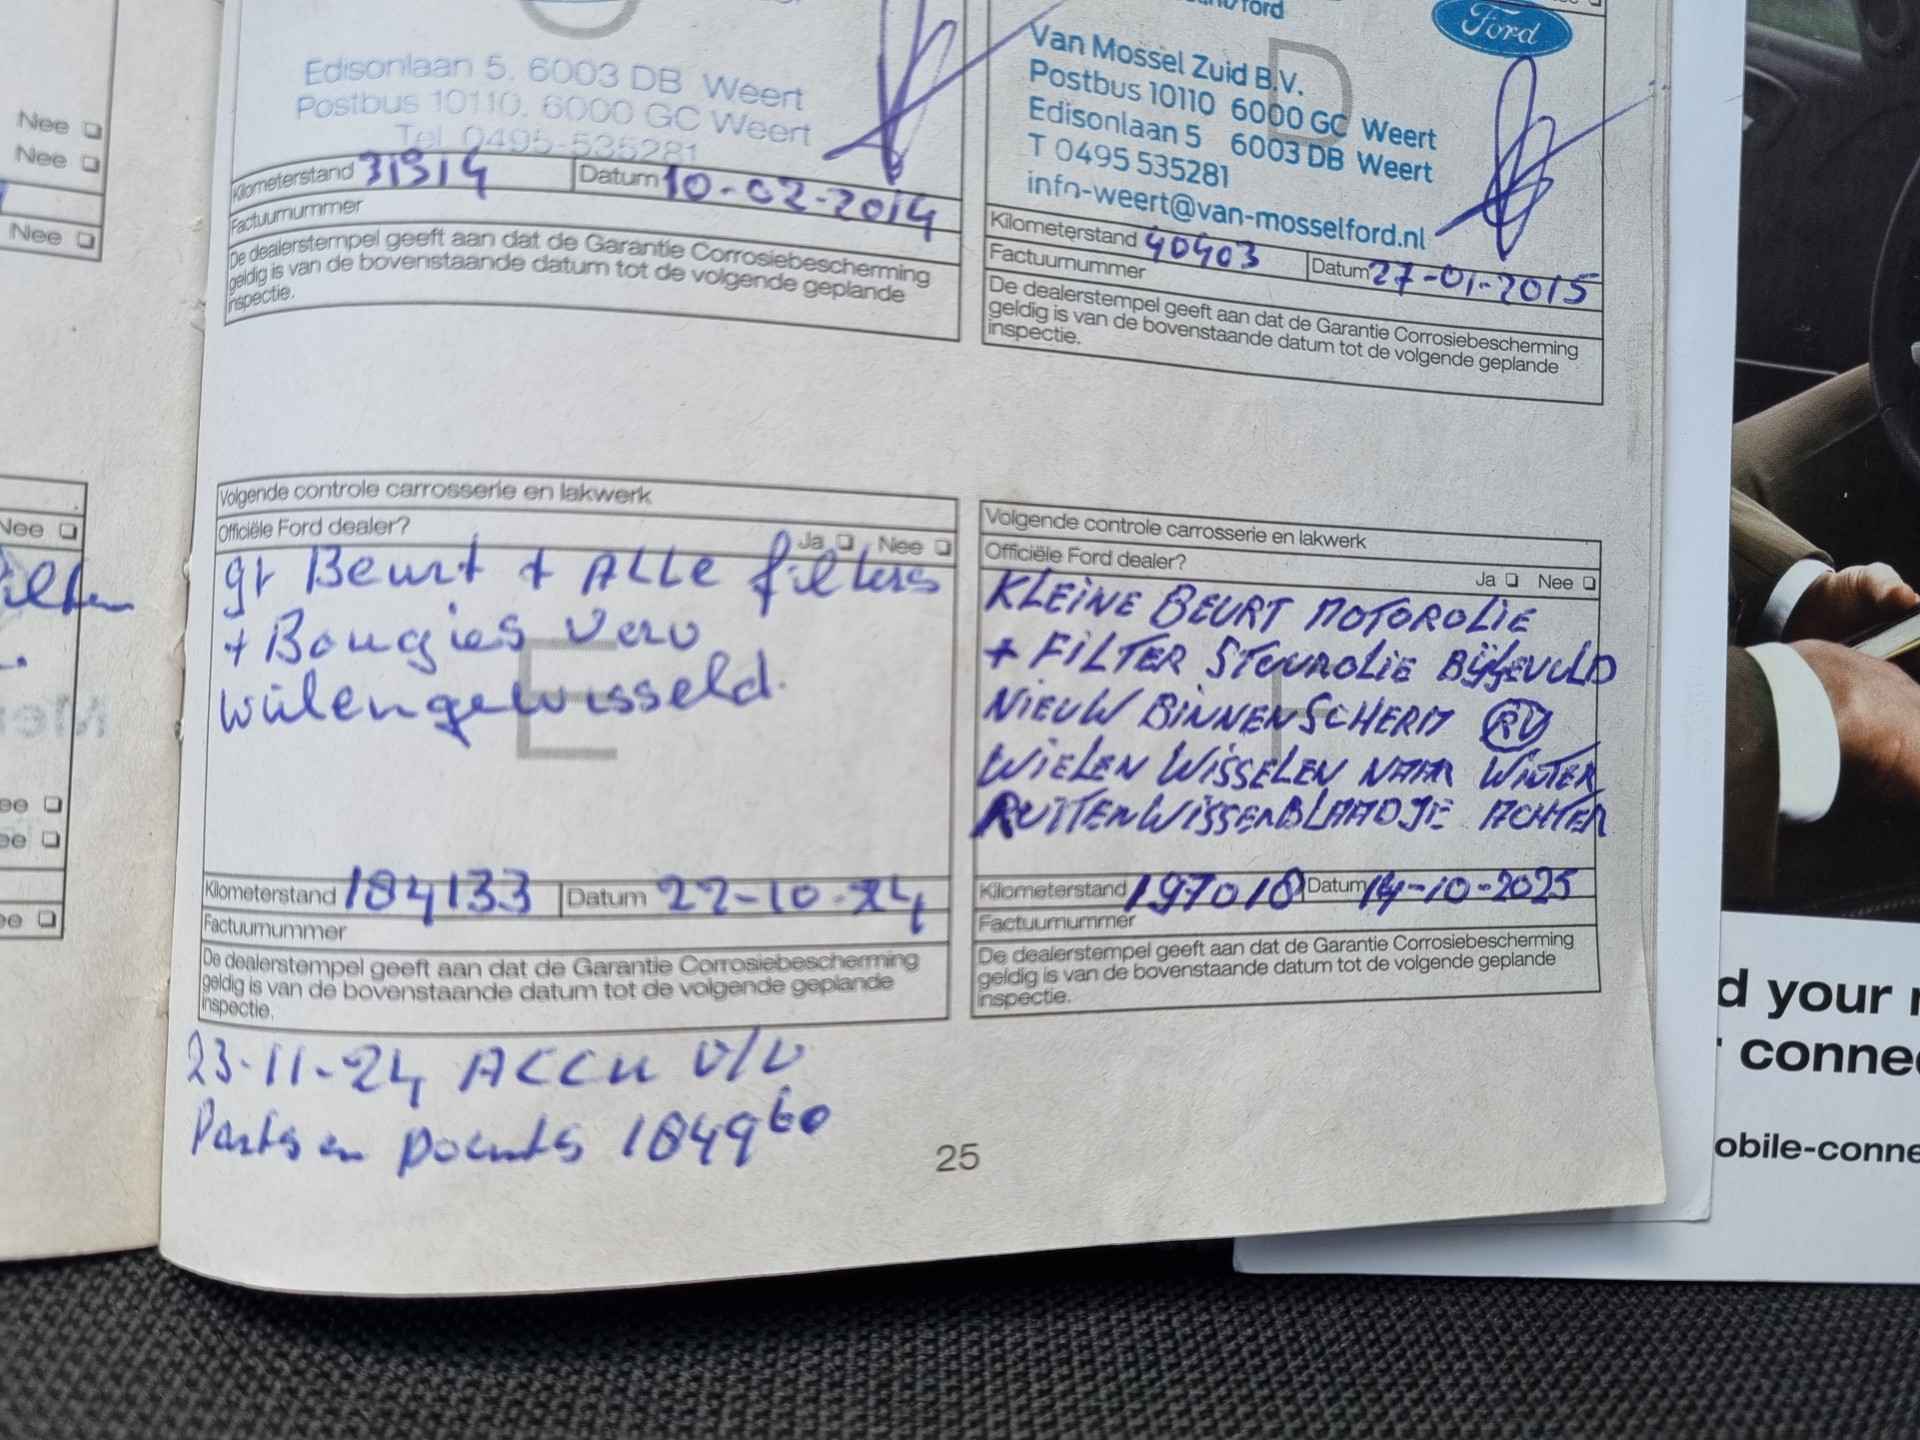 Nee
Nee
Nee
Edisonlaan 5, 6003 DB Weert
Postbus 10110, 6000 GC Weert
Tel 0495-535281
Kilometerstand 31314 Datum 10-02-2014
Factuurnummer
De dealerstempel geeft aan dat de Garantie Corrosiebescherming
geldig is van de bovenstaande datum tot de volgende geplande
inspectie.
Ford
Van Mossel Zuid B.V.
Postbus 10110 6000 GC Weert
Edisonlaan 5 6003 DB Weert
T 0495 535281
info-weert@van-mosselford.nl
D
Kilometerstand 40403 Datum 27-01-2015
Factuurnummer
De dealerstempel geeft aan dat de Garantie Corrosiebescherming
geldig is van de bovenstaande datum tot de volgende geplande
inspectie.
Nee
Volgende controle carrosserie en lakwerk
Officiële Ford dealer?
Ja Nee
gr Beurt + ALLE filters
+ Bougies verv
wielen gewisseld.
E
Kilometerstand 184133 Datum 22-10-24
Factuurnummer
De dealerstempel geeft aan dat de Garantie Corrosiebescherming
geldig is van de bovenstaande datum tot de volgende geplande
inspectie.
23-11-24 ACCU V/V
Parts en Points 184960
Volgende controle carrosserie en lakwerk
Officiële Ford dealer?
Ja Nee
KLEINE BEURT MOTOROLIE
+ FILTER STUUROLIE BIJGEVULD
NIEUW BINNENSCHERM RV
WIELEN WISSELEN NAAR WINTER
RUITENWISSERBLAADJE ACHTER
Kilometerstand 197018 Datum 14-10-2025
Factuurnummer
De dealerstempel geeft aan dat de Garantie Corrosiebescherming
geldig is van de bovenstaande datum tot de volgende geplande
inspectie.
25
d your
conne
obile-conne